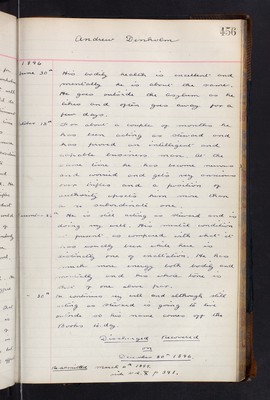 456
Andrew Denholm
1896
June 30th His bodily health is excellent and
mentally he is about the same.
He goes outside the Asylum as he
likes and often goes away for a
few days.
For about a couple of months he
has been acting as steward and
has proved an intelligent and
valuable business man. At the
same time he has become nervous
and worried and gets very anxious
over trifles and a position of
authority upsets him more than
a subordinate one.
He is still acting as steward and is
doing very well. His mental condition
at present as compared with what it
has usually been while here is
one of exaltation. He has
much more energy both bodily and
mentally and his whole tone is
that of one above par.
- 30th He continues very well and although still
acting as steward is going to his
friends so his name comes off the
Books to-day
Discharged Recovered
on
December 30th 1896.
Readmitted March
p 591.